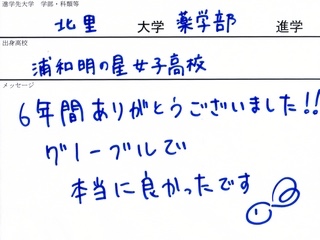 進学先大学 学部・科類等
北里 大学 薬学部 進学
出身高校
浦和明の星女子高校
メッセージ
6年間ありがとうございました!!
グノーブルで
本当に良かったです